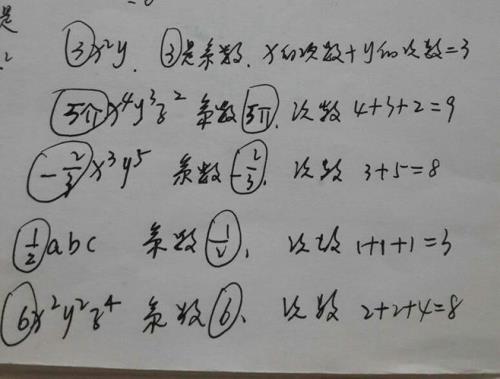 是
2
3x²y. 3是系数. x的次数+y的次数=3
5πx⁴y³z² 系数5π. 次数 4+3+2=9
-2/3x³y⁵ 系数-2/3. 次数 3+5=8
1/2abc 系数1/2. 次数 1+1+1=3
6x²y²z⁴ 系数6. 次数 2+2+4=8